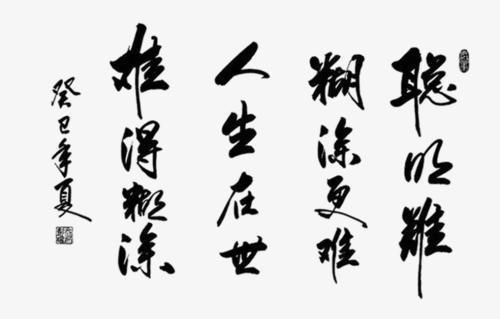 聪明難
糊涂更难
人生在世
难得糊涂
癸巳年夏